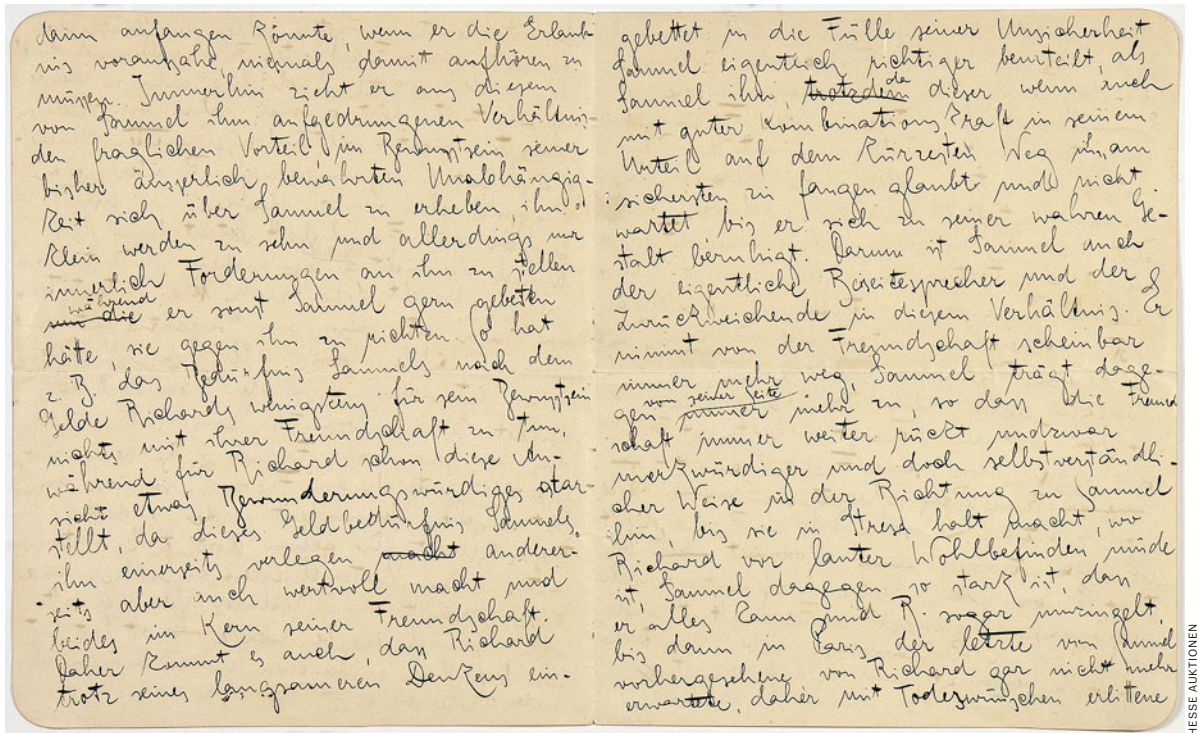 dann anfangen könnte, wenn er die Erlaub
nis voraussähe, niemals damit aufhören zu
müssen. Immerhin zieht er aus diesem
von Samuel ihm aufgedrungenen Verhältnis
den fraglichen Vorteil, im Bewusstsein seiner
bisher äusserlich bewahrten Unabhängig-
keit sich über Samuel zu erheben, ihn
klein werden zu sehn und allerdings nur
innerlich Forderungen an ihn zu stellen
während
um die er sonst Samuel gern gebeten
hätte, sie gegen ihn zu richten. So hat
z. B. das Bedürfnis Samuels nach dem
Gelde Richards wenigstens für sein Bewusstsein
nichts mit ihrer Freundschaft zu tun,
während für Richard schon diese An-
sicht etwas Bewunderungswürdiges dar-
stellt, da dieses Geldbedürfnis Samuels
ihn einerseits verlegen macht anderer-
seits aber auch wertvoll macht und
beides im Kern seiner Freundschaft.
Daher kommt es auch, dass Richard
trotz seines langsameren Denkens ein-
gebettet in die Fülle seiner Unsicherheit
Samuel eigentlich richtiger beurteilt, als
da
Samuel ihn, trotzdem dieser wenn auch
mit guter Kombinationskraft in seinem
Urteil auf dem kürzesten Weg ihn am
sichersten zu fangen glaubt und nicht
wartet, bis er sich zu seiner wahren Ge-
stalt beruhigt. Darum ist Samuel auch
der eigentliche Beiseitesprecher und der
Zurückweichende in diesem Verhältnis. Er
nimmt von der Freundschaft scheinbar
immer mehr weg, Samuel trägt dage-
von seiner Seite
gen immer mehr zu, so dass die Freund
schaft immer weiter rückt undzwar
merkwürdiger und doch selbstverständli-
cher Weise in der Richtung zu Samuel
hin, bis sie in Stresa halt macht, wo
Richard vor lauter Wohlbefinden müde
ist, Samuel dagegen so stark ist, dass
er alles kann und R. sogar umzingelt,
bis dann in Paris der letzte von Samuel
vorhergesehene von Richard gar nicht mehr
erwartete, daher mit Todeswünschen erlittene